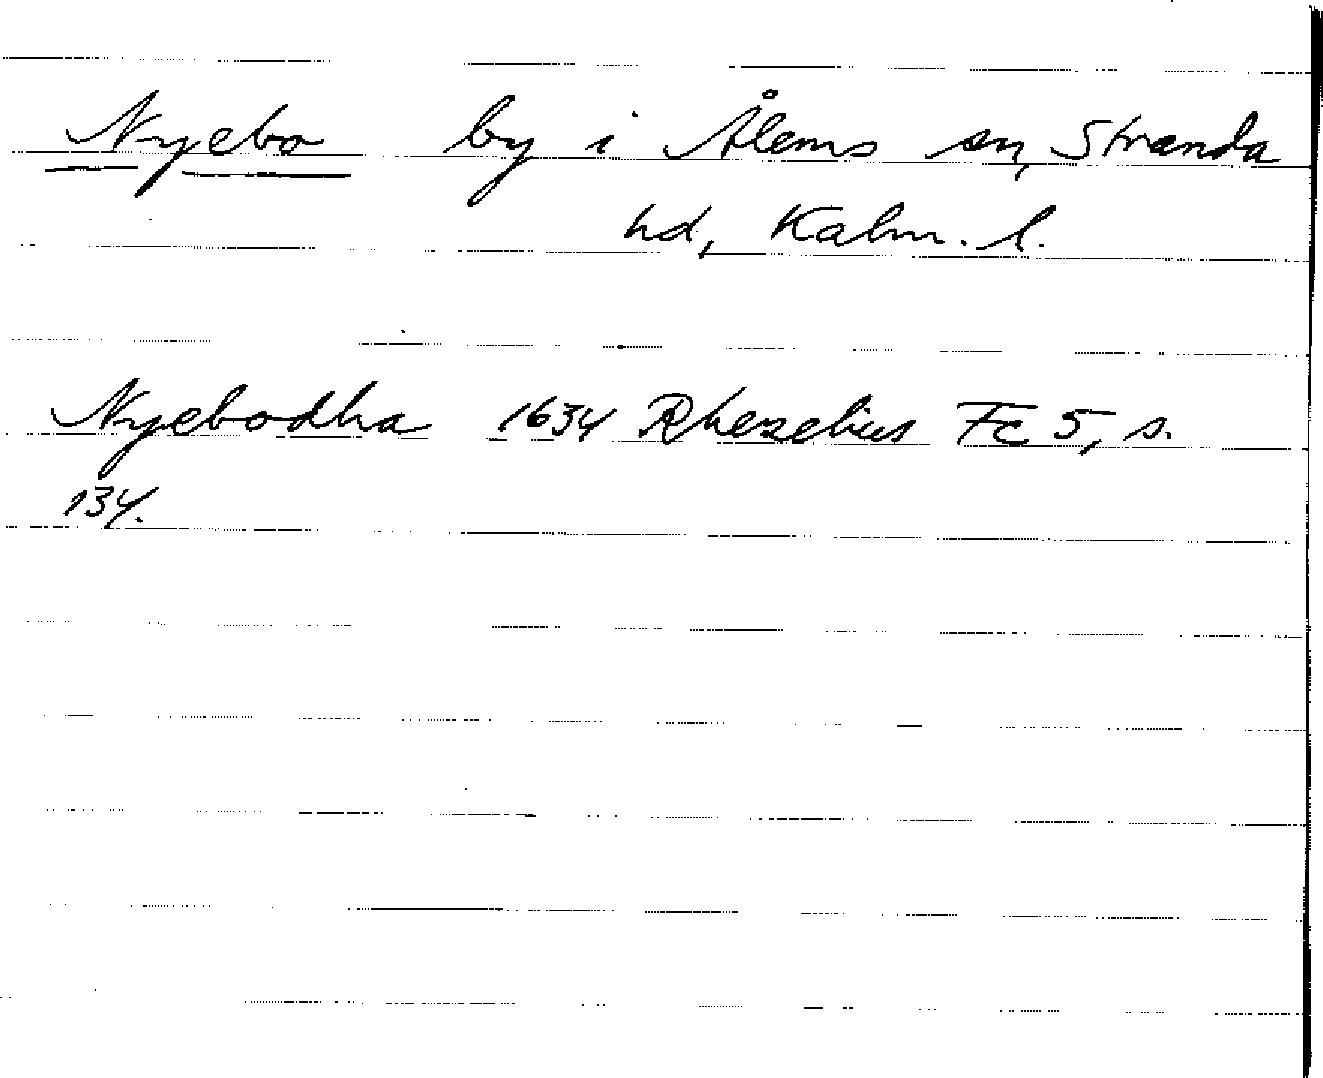 Nyebo by i Ålems sn, Stranda
hd, Kalm. l.
Nyebodha 1634 Rhezelius Fc 5, s.
134.